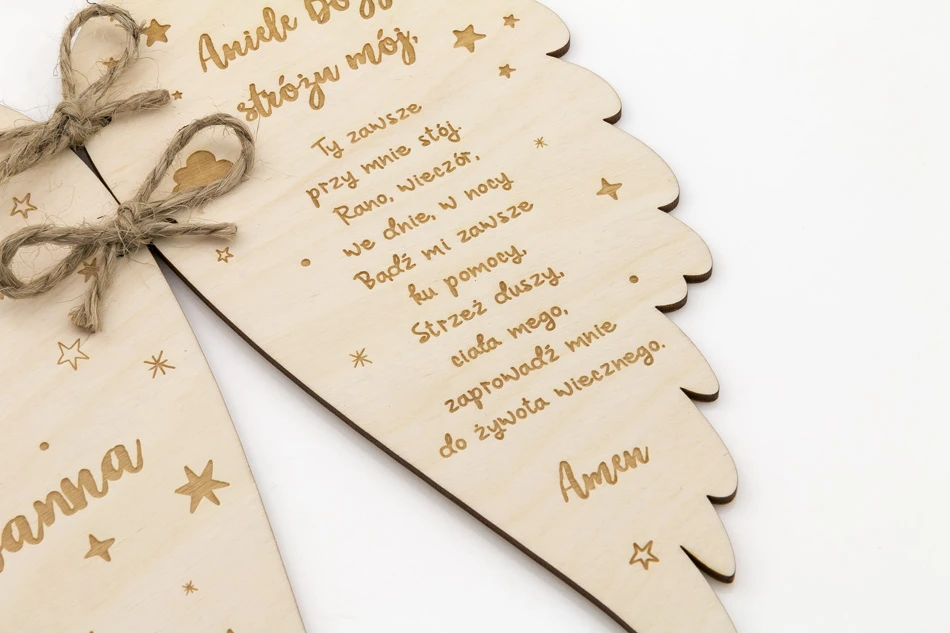 Aniele Boży
stróżu mój,
Ty zawsze
przy mnie stój.
Rano, wieczór,
we dnie, w nocy
Bądź mi zawsze
ku pomocy,
Strzeż duszy,
ciała mego,
zaprowadź mnie
do żywota wiecznego.
Amen